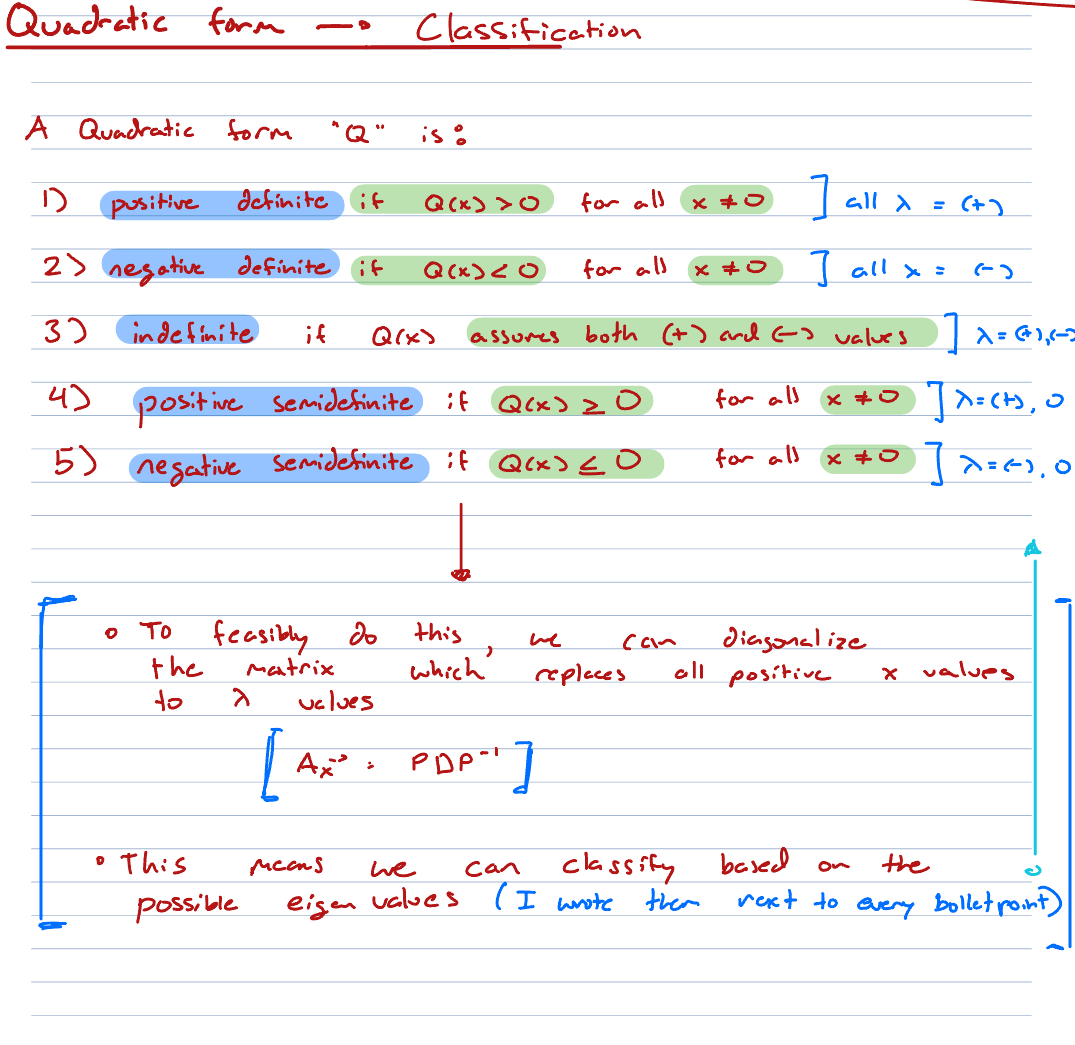 Quadratic form → Classification
A Quadratic form "Q" is:
1) positive definite if Q(x) > 0 for all x ≠ 0 ] all λ = (+)
2) negative definite if Q(x) < 0 for all x ≠ 0 ] all λ = (-)
3) indefinite if Q(x) assumes both (+) and (-) values ] λ = (+),(-)
4) positive semidefinite if Q(x) ≥ 0 for all x ≠ 0 ] λ = (+), 0
5) negative semidefinite if Q(x) ≤ 0 for all x ≠ 0 ] λ = (-), 0
• To feasibly do this, we can diagonalize
the matrix which replaces all positive x values
to λ values
[ Ax⃗ = PDP⁻¹ ]
• This means we can classify based on the
possible eigen values (I wrote them next to every bolletpoint)